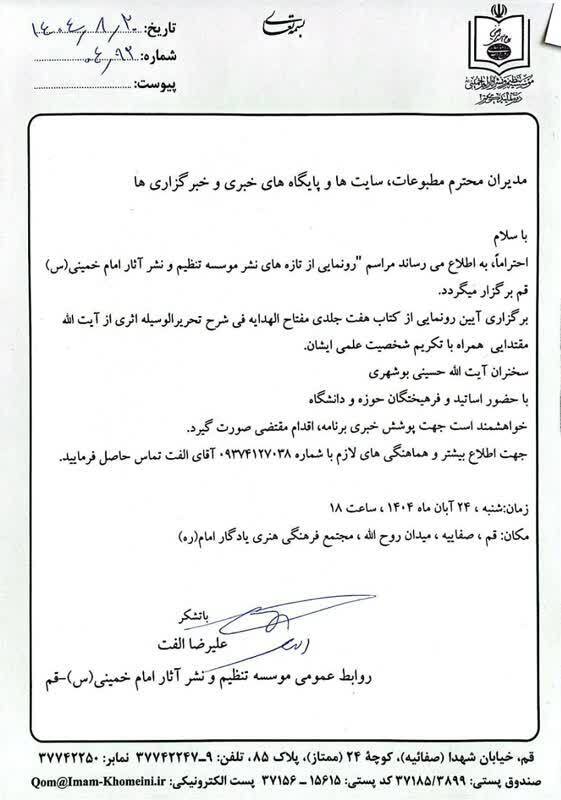 بسمه تعالی
تاریخ: ۱۴۰۴/۸/۲۰
شماره: ۰۴/۹۲
پیوست:
مدیران محترم مطبوعات، سایت ها و پایگاه های خبری و خبرگزاری ها
با سلام
احتراماً، به اطلاع می رساند مراسم "رونمایی از تازه های نشر موسسه تنظیم و نشر آثار امام خمینی(س)
قم برگزار میگردد.
برگزاری آیین رونمایی از کتاب هفت جلدی مفتاح الهدایه فی شرح تحریرالوسیله اثری از آیت الله
مقتدایی همراه با تکریم شخصیت علمی ایشان.
سخنران آیت الله حسینی بوشهری
با حضور اساتید و فرهیختگان حوزه و دانشگاه
خواهشمند است جهت پوشش خبری برنامه، اقدام مقتضی صورت گیرد.
جهت اطلاع بیشتر و هماهنگی های لازم با شماره ۰۹۳۷۴۱۲۷۰۳۸ آقای الفت تماس حاصل فرمایید.
زمان:شنبه ، ۲۴ آبان ماه ۱۴۰۴ ، ساعت ۱۸
مکان: قم ، صفاییه ، میدان روح الله ، مجتمع فرهنگی هنری یادگار امام(ره)
باتشکر
علیرضا الفت
روابط عمومی موسسه تنظیم و نشر آثار امام خمینی(س)-قم
قم، خیابان شهدا (صفائیه)، کوچۀ ۲۴ (ممتاز)، پلاک ۸۵، تلفن: ۹-۳۷۷۴۲۲۴۷ نمابر: ۳۷۷۴۲۲۵۰
صندوق پستی: ۳۷۱۸۵/۳۸۹۹ کد پستی: ۱۵۶۱۵ ـ ۳۷۱۵۶ پست الکترونیکی: Qom@Imam-Khomeini.ir